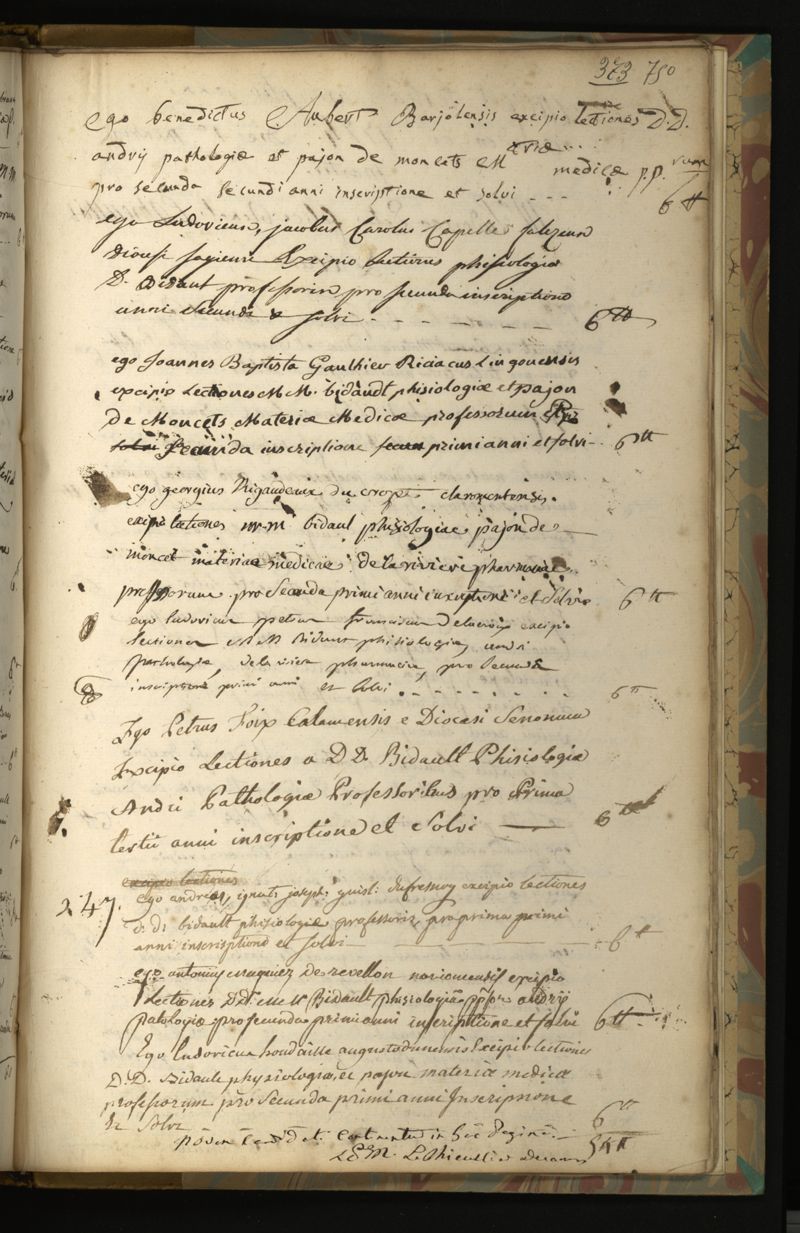 373 750
Ego benedictus Aubert Barjolensis excipio lectiones D.D.
andrij pathologiæ et pajon de moncets M medicæ pp.
pro secunda secundi anni inscriptione et solvi - - - 6 tt
ego Ludovicus, jacobus Carolus Capelle
Excipio lectiones phisiologiæ
D. Bidault professoris pro secunda inscriptione
anni secundi & solvi - - - - - - 6 tt
ego Joannes Baptista Gauthier Riciacus Lingonensis
excipio Lectiones M M. bidaudt phisiologiæ et pajon
De Moncets Materiæ Medicæ professorum
solvi secunda inscriptione primi anni et solvi - 6 tt
ego georgius Rigaudeaux du claromontensis.
lectiones m.m bidaut phisiologiae pajon de
moncet materiae medicae de la riviere pharmaciæ
professorum pro secunda primi anni inscriptione et solvi 6 tt
ego ludovicus petrus franciscus Delacroix excipio
lectiones M M Bidault phisiologiæ, andri
pathologiæ, de la riviere pharmaciæ, pro secunda
inscriptione primi anni et solvi . - - - - - - 6 tt
Ego Petrus Foix Calamensis e Diocesi Senonum
Excipio Lectiones a D D. Bidault Phisiologiæ
Andri Pathologiæ Professoribus pro Prima
tertii anni inscriptione et solvi 6 tt
excipio lectiones
247. Ego andreas, ignat, joseph, guisl. dufresnoy excipio lectiones
d. d. bidault phisiologiæ professoris, pro prima primi
anni inscriptione et solvi 6 tt
ego antonius de revellon excipio
Lectiones Bidault phisiologiæ andrij
patologiæ pro secunda primi anni inscriptione et solvi 6 tt
Ego ludovicus houdaille augustodunensis Excipio lectiones
D.D. Bidault physiologiæ, et pajon materiæ medicæ
professorum pro secunda primi anni Inscriptione
& solvi 6 tt
in hac Pagina 54 tt
L. Thieullier decanus